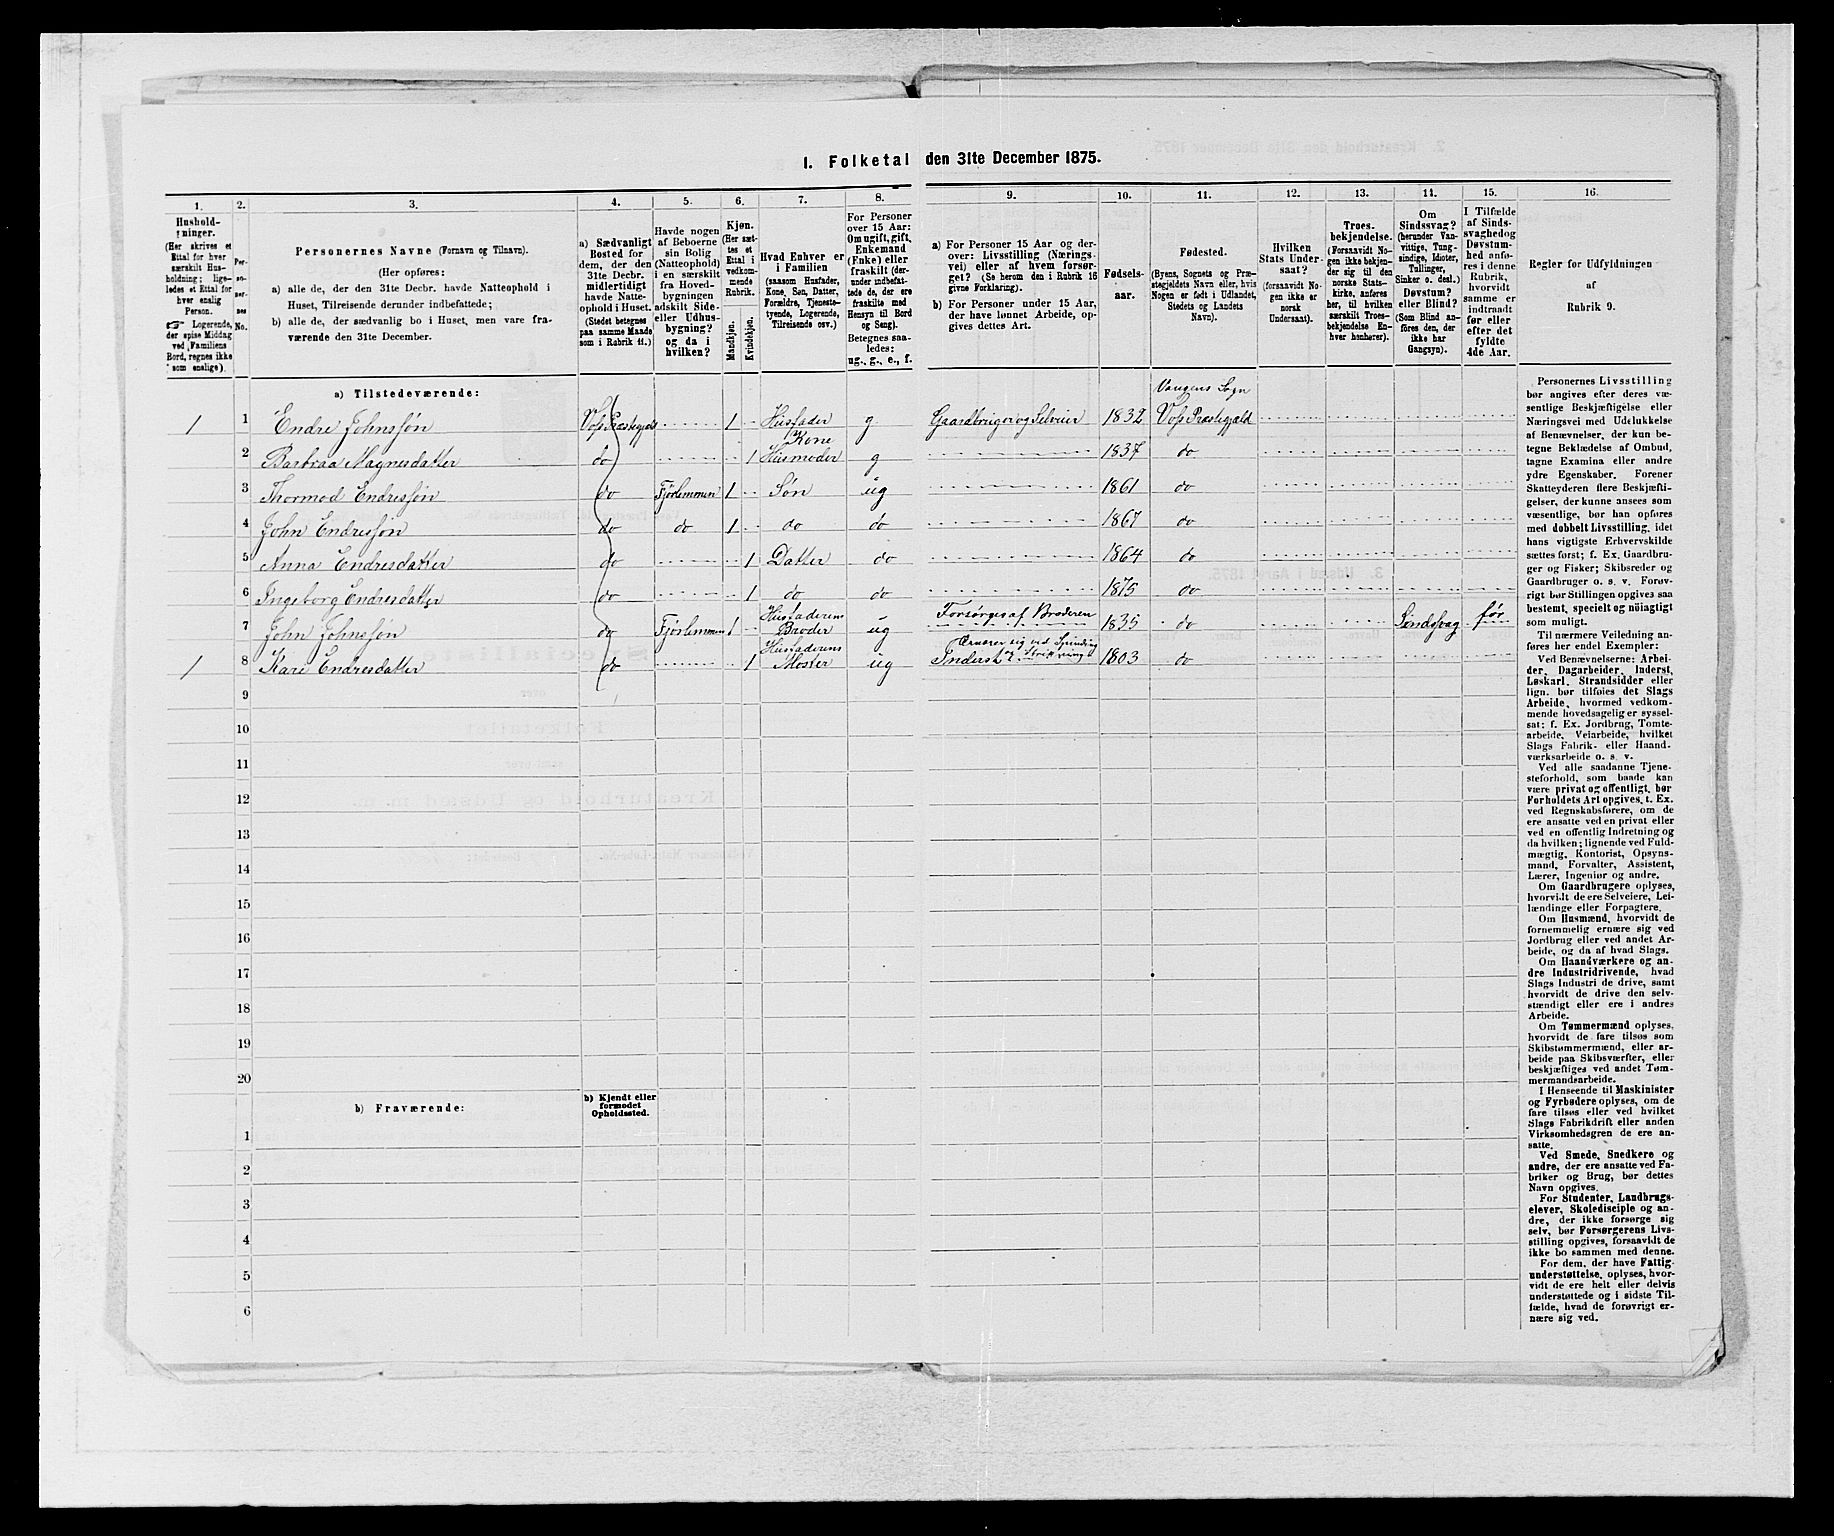 1. Folketal den 31te December 1875.
1. 2. 3. 4. 5. 6. 7. 8. 9. 10. 11. 12. 13. 14. 15. 16.
Hushold-
ninger.
(Her skrives et
Ettal for hver
særskilt Hus-
holdning; lige-
ledes et Ettal for
hver enslig
Person.
☞ Logerende,
der spise Middag
ved Familiens
Bord, regnes ikke
som enslige).
Per-
so-
ner-
nes
No.
Personernes Navne (Fornavn og Tilnavn).
(Her opføres:
a) alle de, der den 31te Decbr. havde Natteophold i
Huset, Tilreisende derunder indbefattede;
b) alle de, der sædvanlig bo i Huset, men vare fra-
værende den 31te December.
a) Sædvanligt
Bosted for
dem, der den
31te Decbr.
midlertidigt
havde Natte-
ophold i Huset.
(Stedet betegnes
paa samme Maade
som i Rubrik 11.)
Havde nogen
af Beboerne
sin Bolig
(Natteophold)
i en særskilt
fra Hoved-
bygningen
adskilt Side-
eller Udhus-
bygning?
og da i
hvilken?
Kjøn.
(Her sæt-
tes et
Ettal i
vedkom-
mende
Rubrik.
Mandkjøn.
Kvindekjøn.
Hvad Enhver er
i Familien
(saasom Husfader,
Kone, Søn, Datter,
Forældre, Tjeneste-
tyende, Logerende,
Tilreisende osv.)
For Personer
over 15 Aar:
Om ugift, gift,
Enkemand
(Enke) eller
fraskilt (der-
under indbefat-
tede de, der ere
fraskilte med
Hensyn til Bord
og Seng).
Betegnes saa-
ledes:
ug., g., e., f.
a) For Personer 15 Aar og der-
over: Livsstilling (Nærings-
vei) eller af hvem forsør-
get? (Se herom den i Rubrik 16
givne Forklaring).
b) For Personer under 15 Aar,
der have lønnet Arbeide, op-
gives dettes Art.
Fødsels-
aar.
Fødested.
(Byens, Sognets og Præ-
stegjeldets Navn eller, hvis
Nogen er født i Udlandet,
Stedets og Landets
Navn).
Hvilken
Stats Under-
saat?
(forsaavidt No-
gen ikke er
norsk
Undersaat).
Troes-
bekjendelse.
(Forsaavidt No-
gen ikke bekjen-
der sig til den
norske Stats-
kirke, anføres
her, til hvilken
særskilt Troes-
bekjendelse En-
hver henhører).
Om
Sindssvag?
(herunder Van-
vittige, Tung-
sindige, Idioter,
Tullinger,
Sinker o. desl.)
Døvstum?
eller Blind?
(Som Blind an-
føres den, der
ikke har
Gangsyn).
I Tilfælde
af Sinds-
svaghed og
Døvstum-
hed anfø-
res i denne
Rubrik,
hvorvidt
samme er
indtraadt
før eller
efter det
fyldte
4de Aar.
Regler for Udfyldningen
af
Rubrik 9.
a) Tilstedeværende:
Vangens Sogn
1 1 Endre Johnssøn Vos Præstegjeld 1 Husfader g Gaardbruger og Selveier 1832 Vos Præstegjeld
Kone
2 Barbraa Magnesdatter do 1 Husmoder g 1837 do
3 Thormod Endressøn do Fjøslemmen 1 Søn ug 1861 do
4 John Endressøn do do 1 do do 1867 do
5 Anna Endresdatter do 1 Datter do 1864 do
6 Ingeborg Endresdatter do 1 do do 1875 do
7 John Johnssøn do Fjøslemmen 1 Husfaderens Broder ug Forsørges af Broderen 1835 do Sindssvag før
1 8 Kari Endresdatter do 1 Husfaderens Moster ug Inderst Ernærer sig ved Spinding og Strikning 1803 do
9
10
11
12
13
14
15
16
17
18
19
20
b) Fraværende:
b) Kjendt eller
formodet
Opholdssted.
1
2
3
4
5
6
Personernes Livsstilling
bør angives efter deres væ-
sentlige Beskjæftigelse eller
Næringsvei med Udelukkelse
af Benævnelser, der kun be-
tegne Beklædelse af Ombud,
tagne Examina eller andre
ydre Egenskaber. Forener
Skatteyderen flere Beskjæfti-
gelser, der kunne ansees som
væsentlige, bør han opføres
med dobbelt Livsstilling, idet
hans vigtigste Erhvervskilde
sættes først; f. Ex. Gaardbru-
ger og Fisker; Skibsreder og
Gaardbruger o. s. v. Forøv-
rigt bør Stillingen opgives saa
bestemt, specielt og nöiagtigt
som muligt.
Til nærmere Veiledning an-
føres her endel Exempler:
Ved Benævnelserne: Arbei-
der, Dagarbeider, Inderst,
Løskarl, Strandsidder eller
lign. bør tilføies det Slags
Arbeide, hvormed vedkom-
mende hovedsagelig er syssel-
sat; f. Ex. Jordbrug, Tomte-
arbeide, Veiarbeide, hvilket
Slags Fabrik- eller Haand-
værksarbeide o. s. v.
Ved alle saadanne Tjene-
steforhold, som baade kan
være privat og offentligt, bør
Forholdets Art opgives, t. Ex.
ved Regnskabsførere, om de
ere ansatte ved en privat eller
ved en offentlig Indretning og
da hvilken; lignende ved Fuld-
mægtig, Kontorist, Opsyns-
mand, Forvalter, Assistent,
Lærer, Ingeniør og andre.
Om Gaardbrugere oplyses,
hvorvidt de ere Selveiere, Lei-
lændinge eller Forpagtere.
Om Husmænd, hvorvidt de
fornemmelig ernære sig ved
Jordbrug eller ved andet Ar-
beide, og da af hvad Slags.
Om Haandværkere og an-
dre Industridrivende, hvad
Slags Industri de drive, samt
hvorvidt de drive den selv-
stændigt eller ere i andres
Arbeide.
Om Tømmermænd oplyses,
hvorvidt de fare tilsøs som
Skibstømmermænd, eller ar-
beide paa Skibsværfter, eller
beskjæftiges ved andet Tøm-
mermandsarbeide.
I Henseende til Maskinister
og Fyrbødere oplyses, om de
fare tilsøs eller ved hvilket
Slags Fabrikdrift eller anden
Virksomhedsgren de ere an-
satte.
Ved Smede, Snedkere og
andre, der ere ansatte ved Fa-
briker og Brug, bør dettes
Navn opgives.
For Studenter, Landbrugs-
elever, Skoledisciple og an-
dre, der ikke forsørge sig
selv, bør Forsørgerens Livs-
stilling opgives, forsaavidt de
ikke bo sammen med denne.
For dem, der have Fattig-
understøttelse, oplyses, hvor-
vidt de ere helt eller delvis
understøttede og i sidste Til-
fælde, hvad de forøvrigt er-
nære sig ved.